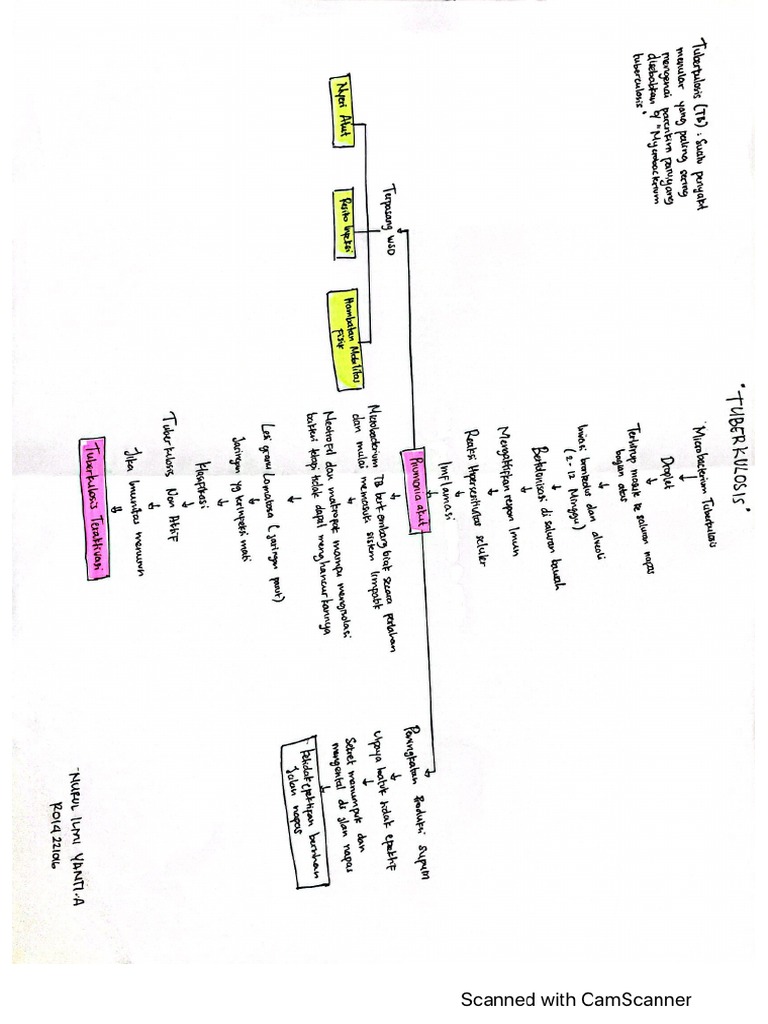 "TUBERKULOSIS"
Tuberkulosis (TB) : Suatu penyakit
menular yang paling sering
mengenai parenkim paru yang
disebabkan o/ "Mycrobacterium
tuberculosis"
Microbacterium Tuberkulosis
Droplet
Terhirup masuk ke saluran napas
bagian atas
Invasi bronkolus dan alveoli
(2-12 Minggu)
Berkolonisasi di saluran bawah
Mengaktifkan respon Imun
Reaksi Hipersensitivitas seluler
Inflamasi
Pnumonia akut
Terpasang WSD
Nyeri Akut
Resiko Infeksi
Hambatan Mobilitas
Fisik
Mikobacterium TB berkembang biak secara perlahan
dan mulai memasuk sistem limpatik
Neotrofil dan makropat mampu mengisolasi
bakteri tetapi tidak dapat menghancurkannya
Lesi granulamatosa (jaringan parut)
Jaringan yg terinpeksi mati
Klasipikasi
Tuberkulosis Non Aktif
Jika Imunitas menurun
Tuberkulosis Teraktivasi
Peningkatan Produksi Sputum
Upaya batuk tidak efektif
Sekret menumpuk dan
mengental di jalan napas
Ketidakefektipan bersihan
Jalan napas
-NURUL ILMI YANTI.A
R014221016
Scanned with CamScanner